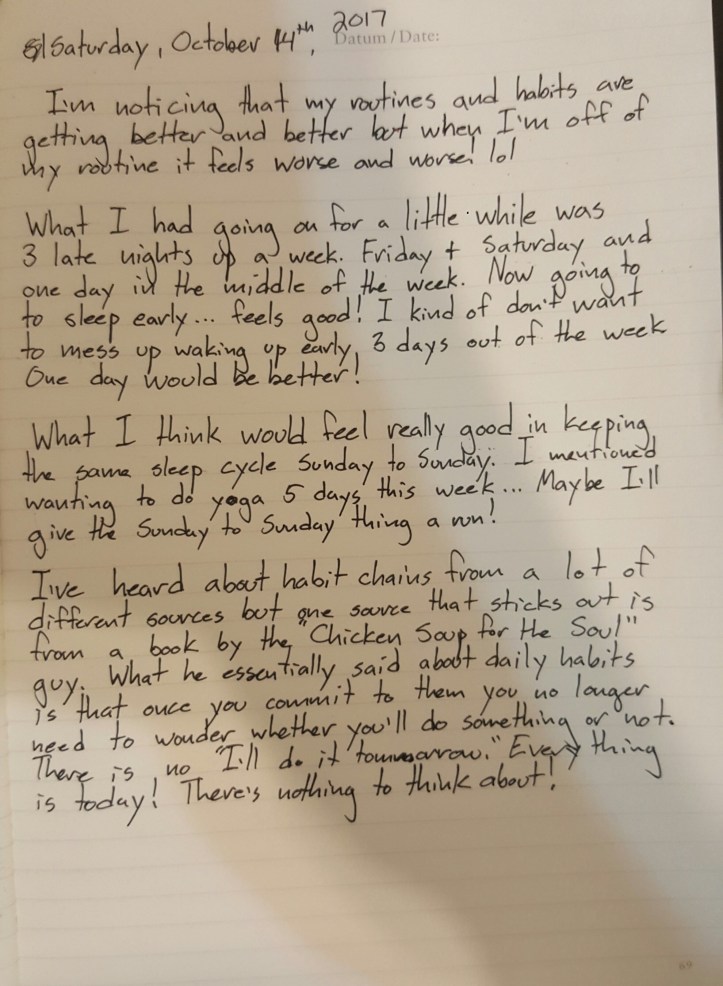 Saturday, October 14th, 2017
Datum / Date:
I'm noticing that my routines and habits are
getting better and better but when I'm off of
my routine it feels worse and worse! lol
What I had going on for a little while was
3 late nights up a week. Friday + Saturday and
one day in the middle of the week. Now going to
to sleep early... feels good! I kind of don't want
to mess up waking up early, 3 days out of the week
One day would be better!
What I think would feel really good in keeping
the same sleep cycle Sunday to Sunday. I mentioned
wanting to do yoga 5 days this week... Maybe I'll
give the Sunday to Sunday thing a run!
I've heard about habit chains from a lot of
different sources but one source that sticks out is
from a book by the "Chicken Soup for the Soul"
guy. What he essentially said about daily habits
is that once you commit to them you no longer
need to wonder whether you'll do something or not.
There is no "I'll do it tommorrow." Every thing
is today! There's nothing to think about!
69